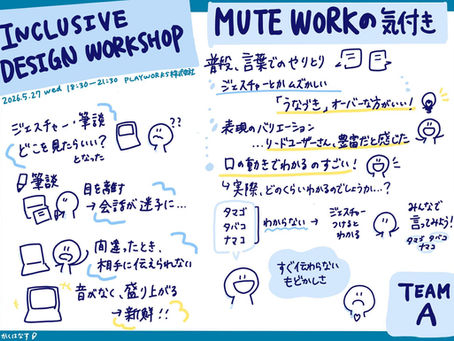 INCLUSIVE
DESIGN WORKSHOP
2026.5.27 wed 18:30-21:30 PLAYWORKS株式会社
ジェスチャー・筆談
どこを見たらいい?
となった
??
筆談
目を離す
→会話が迷子に…
間違ったとき、
相手に伝えられない
音がなく、盛り上がる
→新鮮!!
がくはなす
MUTE WORKの気付き
普段、言葉でのやりとり
ジェスチャーとかムズかしい
「うなづき」オーバーな方がいい!
表現のバリエーション
…リードユーザーさん、豊富だと感じた
口の動きでわかるのすごい!
↳実際、どのくらいわかるのでしょうか…?
タマゴ
タバコ
ナマコ
わからない→
ジェスチャー
つけると
わかる
みんなで
言ってみよう!
タマゴ タバコ
ナマコ
すぐ伝わらない
もどかしさ
TEAM
A